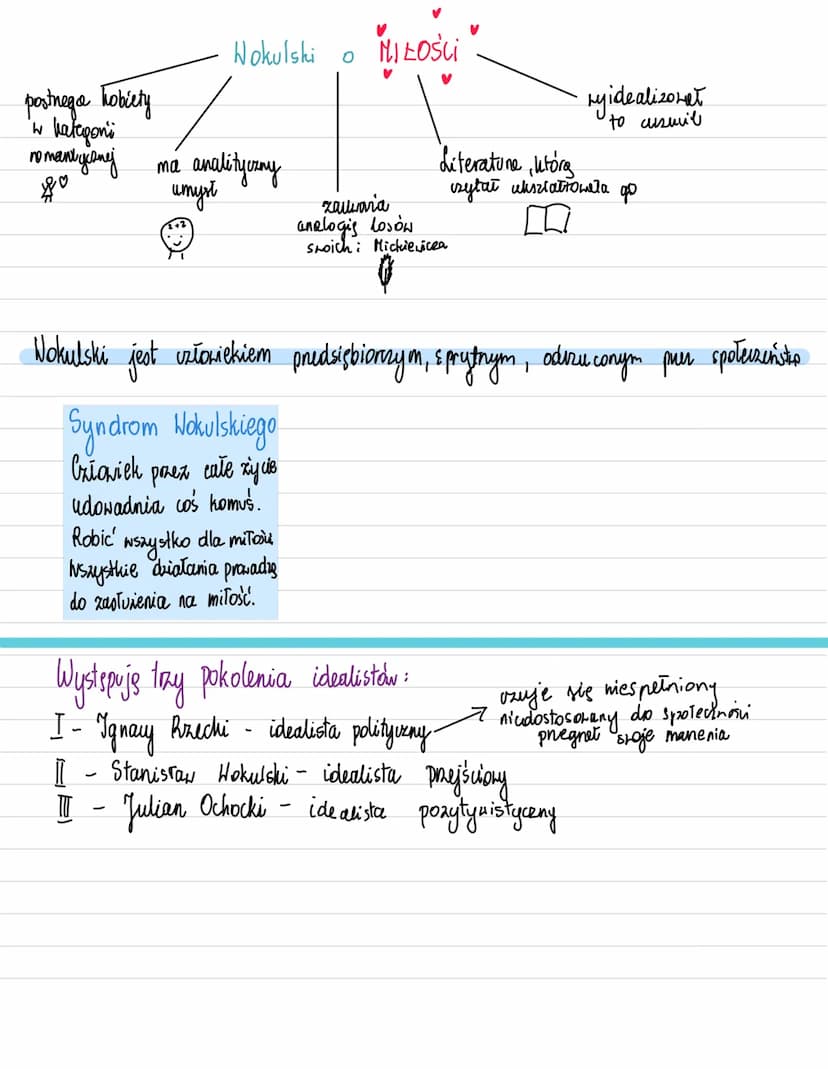 Wokulski o MIŁOŚCI
postrzega kobiety
w kategorii
romantycznej
ma analityczny
umysł
2+2
zauważa
analogię losów
swoich i Mickiewicza
Literatura, którą
czytał ukształtowała go
wyidealizował
to uczucie
Wokulski jest człowiekiem przedsiębiorczym, sprytnym, odrzuconym przez społeczeństwo
Syndrom Wokulskiego
Człowiek przez całe życie
udowadnia coś komuś.
Robić wszystko dla miłości
Wszystkie działania prowadzą
do zasłużenia na miłość.
Występują trzy pokolenia idealistów:
I - Ignacy Rzecki - idealista polityczny
czuje się niespełniony
niedostosowany do społeczności
przegrał swoje marzenia
II - Stanisław Wokulski - idealista przejściowy
III - Julian Ochocki - idealista pozytywistyczny